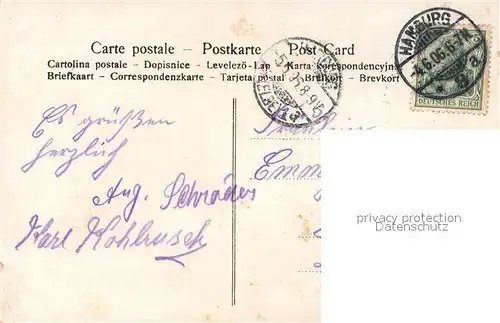 Carte postale - Postkarte - Post Card
Cartolina postale - Dopisnice - Levelező-Lap - Karta korespondencyjna
Briefkaart - Correspondenzkarte - Tarjeta postal - Brefkort - Brevkort
HAMBURG
4.6.06.
DEUTSCHES REICH
Es grüßen
herzlich
Aug. Schrader
Karl Kohlrusch
Emm
privacy protection
Datenschutz